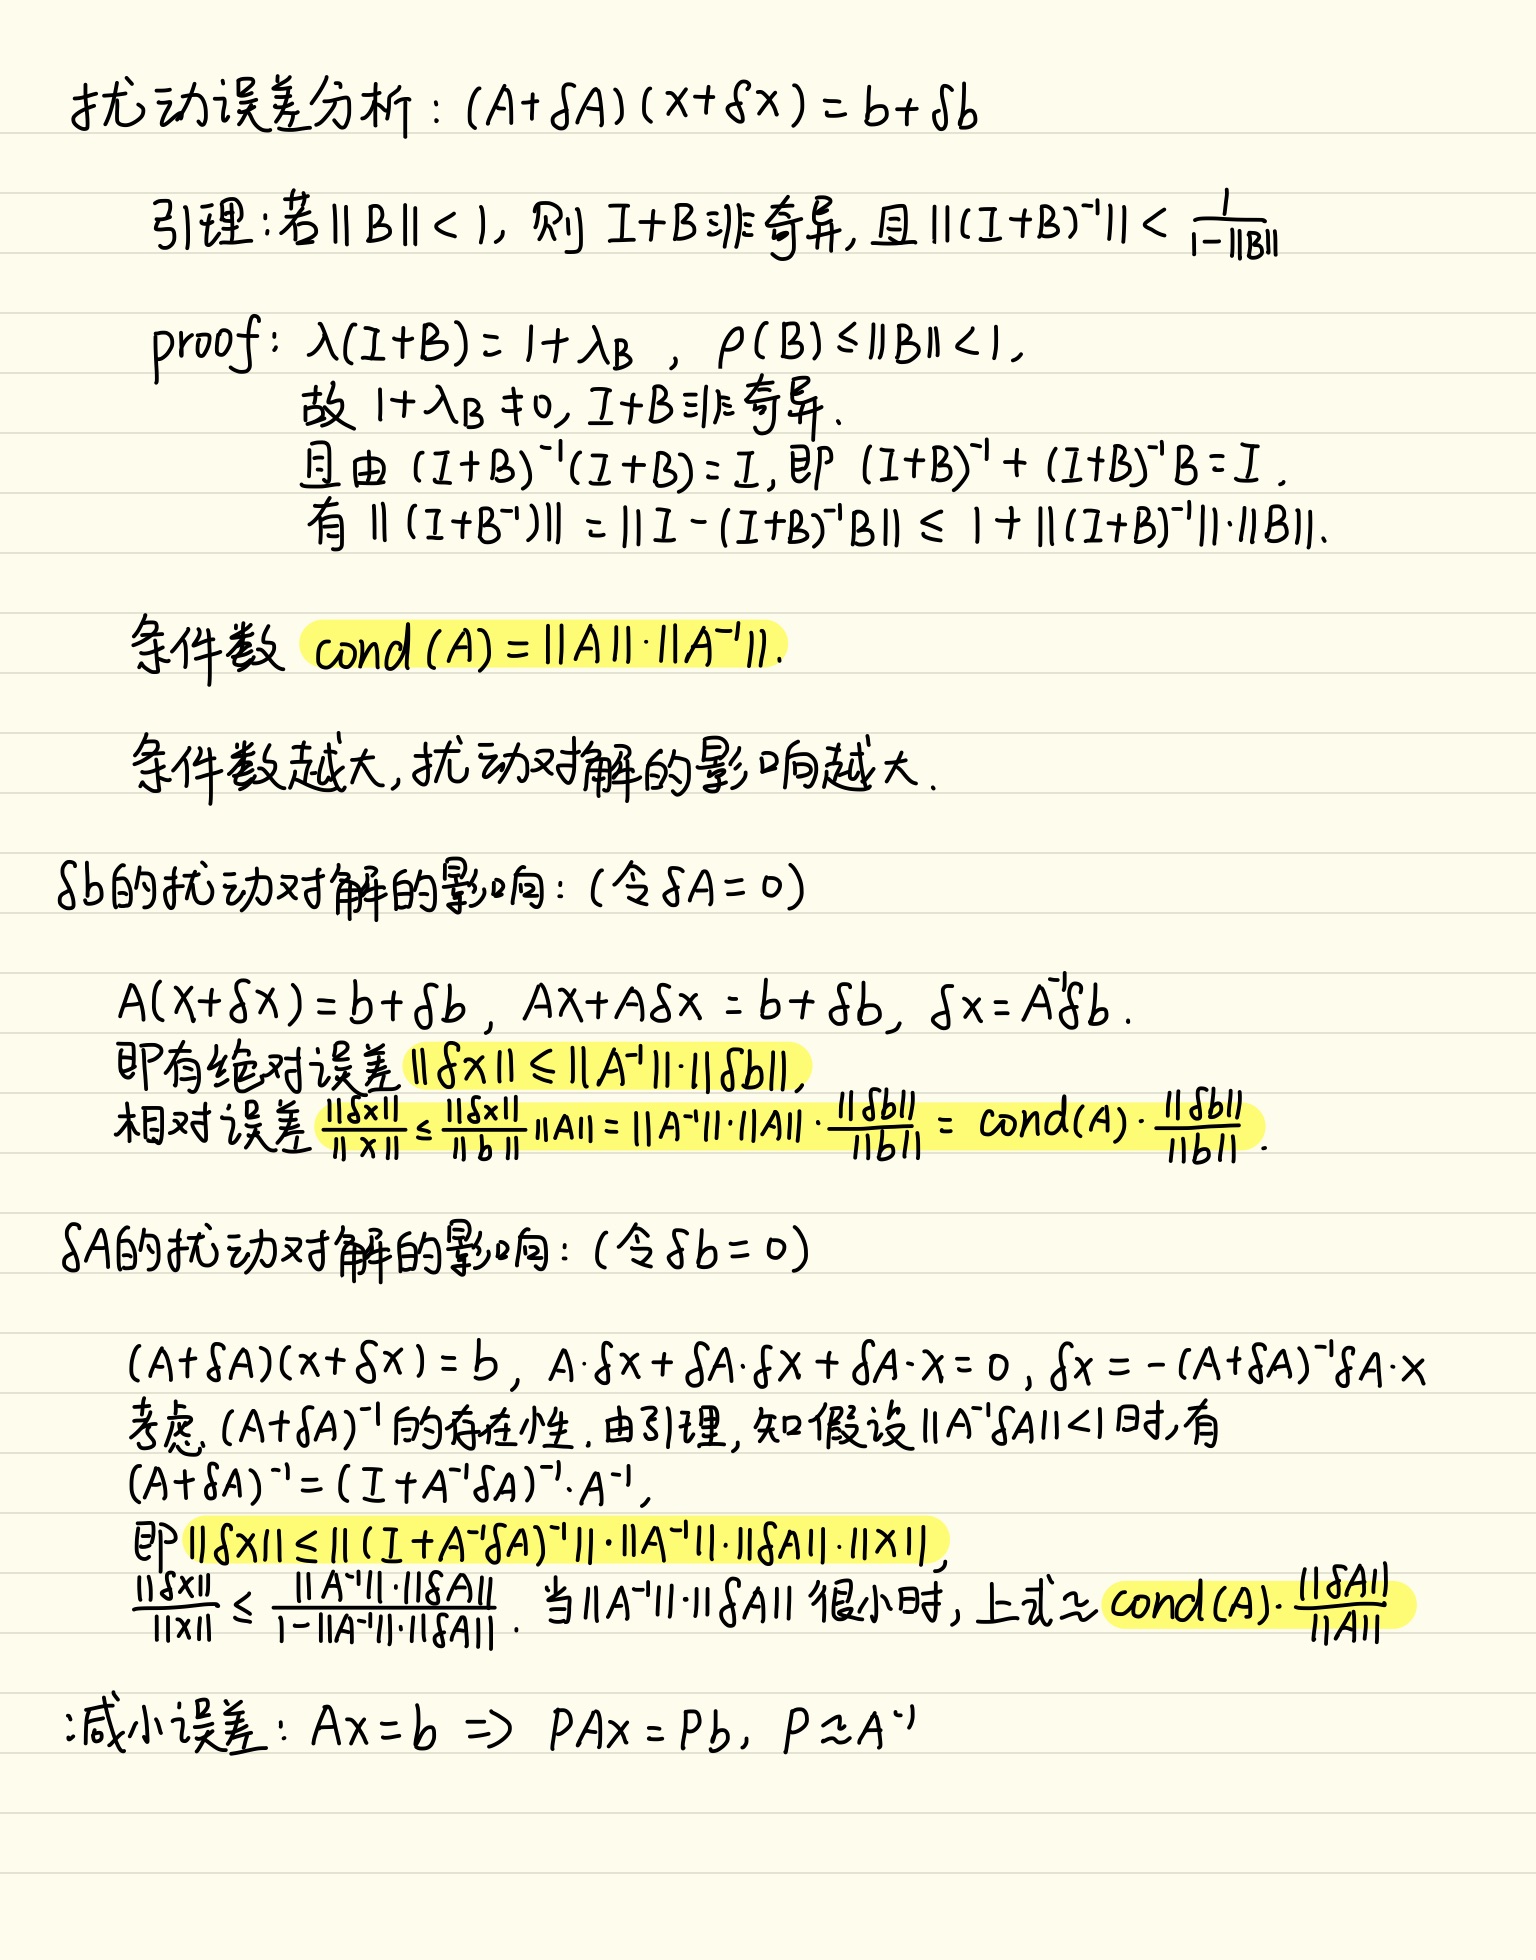 扰动误差分析：(A+δA)(x+δx)=b+δb
引理：若||B||<1, 则 I+B非奇异, 且||(I+B)⁻¹||< 1/(1-||B||)
proof: λ(I+B)=1+λ_B , ρ(B)≤||B||<1,
故 1+λ_B≠0, I+B非奇异.
且由 (I+B)⁻¹(I+B)=I, 即 (I+B)⁻¹+(I+B)⁻¹B=I.
有 ||(I+B⁻¹)|| =||I-(I+B)⁻¹B|| ≤ 1+||(I+B)⁻¹||·||B||.
条件数 cond(A)=||A||·||A⁻¹||.
条件数越大, 扰动对解的影响越大.
δb的扰动对解的影响：(令δA=0)
A(x+δx)=b+δb , Ax+Aδx=b+δb, δx=A⁻¹δb.
即有绝对误差||δx||≤||A⁻¹||·||δb||,
相对误差 ||δx||/||x|| ≤ ||δx||/||b|| ||A||=||A⁻¹||·||A||·||δb||/||b|| = cond(A)·||δb||/||b||.
δA的扰动对解的影响：(令δb=0)
(A+δA)(x+δx)=b, A·δx+δA·δx+δA·x=0, δx=-(A+δA)⁻¹δA·x
考虑 (A+δA)⁻¹的存在性. 由引理, 知假设||A⁻¹δA||<1时, 有
(A+δA)⁻¹=(I+A⁻¹δA)⁻¹·A⁻¹,
即||δx||≤||(I+A⁻¹δA)⁻¹||·||A⁻¹||·||δA||·||x||,
||δx||/||x|| ≤ ||A⁻¹||·||δA||/(1-||A⁻¹||·||δA||). 当||A⁻¹||·||δA||很小时, 上式≈cond(A)·||δA||/||A||
减小误差：Ax=b => PAx=Pb, P≈A⁻¹